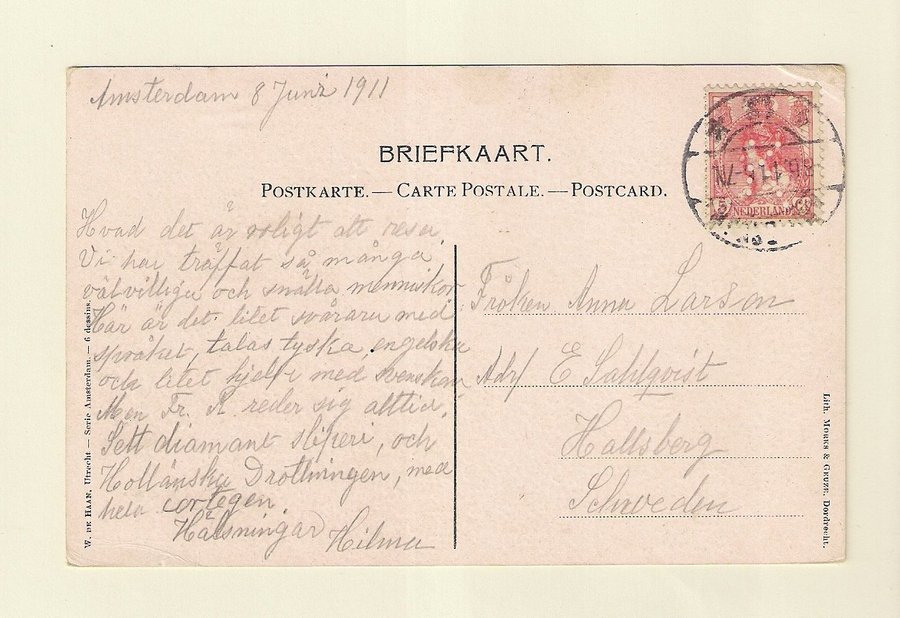 Amsterdam 8 Juni 1911
BRIEFKAART.
POSTKARTE. — CARTE POSTALE. — POSTCARD.
Hvad det är roligt att resa
Vi har träffat så många
välvilliga och snälla menniskor
Här är det litet svårare med
språket, talas tyska, engelska
och litet hjelp med svenskan
Men Fr. R. reder sig alltid.
Sett diamant sliperi, och
Hollänska Drottningen, med
hela cortegen
Hälsningar Hilma
Fröken Anna Larson
Adr/ E Sahlqvist
Hallsberg
Schweden
5 NEDERLAND Ct
5-7N
W. DE HAAN, Utrecht — Serie Amsterdam. — 6 dessins.
Lith. MORKS & GEUZE, Dordrecht.